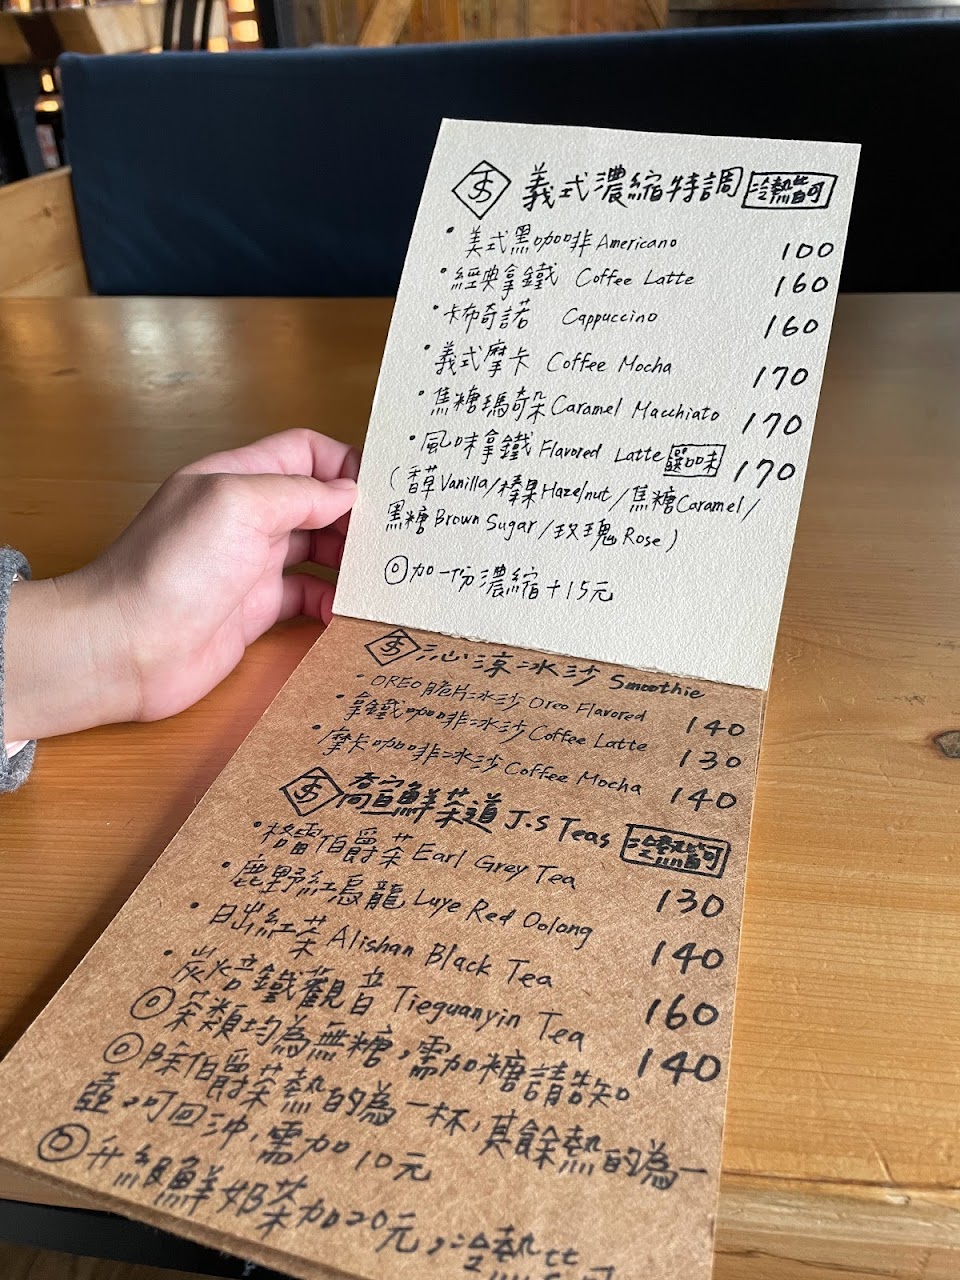 義式濃縮特調 冷熱皆可
・美式黑咖啡 Americano 100
・經典拿鐵 Coffee Latte 160
・卡布奇諾 Cappuccino 160
・義式摩卡 Coffee Mocha 170
・焦糖瑪奇朵 Caramel Macchiato 170
・風味拿鐵 Flavored Latte 選口味 170
(香草Vanilla/榛果Hazelnut/焦糖Caramel/
黑糖Brown Sugar/玫瑰Rose)
加一份濃縮+15元
沁涼冰沙 Smoothie
・OREO脆片冰沙 Oreo Flavored 140
・拿鐵咖啡冰沙 Coffee Latte 130
・摩卡咖啡冰沙 Coffee Mocha 140
鮮茶道 J.S Teas 冷熱皆可
・格雷伯爵茶 Earl Grey Tea 130
・鹿野紅烏龍 Luye Red Oolong 140
・日出紅茶 Alishan Black Tea 160
・炭焙鐵觀音 Tieguanyin Tea 140
茶類均為無糖,需加糖請告知
除伯爵茶熱的為一杯,其餘熱的為一
壺,可回沖,需加10元
升級鮮奶茶加20元,冷熱皆可